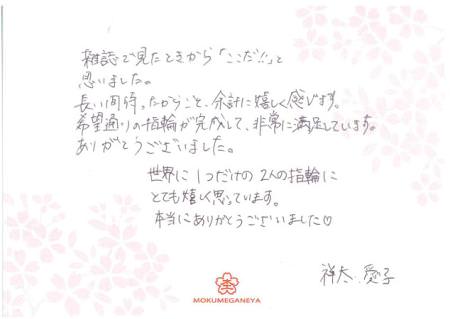 雑誌で見たときから「ここだ!!」と
思いました。
長い間待ったからこそ、余計に嬉しく感じます。
希望通りの指輪が完成して、非常に満足しています。
ありがとうございました。
世界に1つだけの2人の指輪に
とても嬉しく思っています。
本当にありがとうございました♡
祥太 愛子
MOKUMEGANEYA